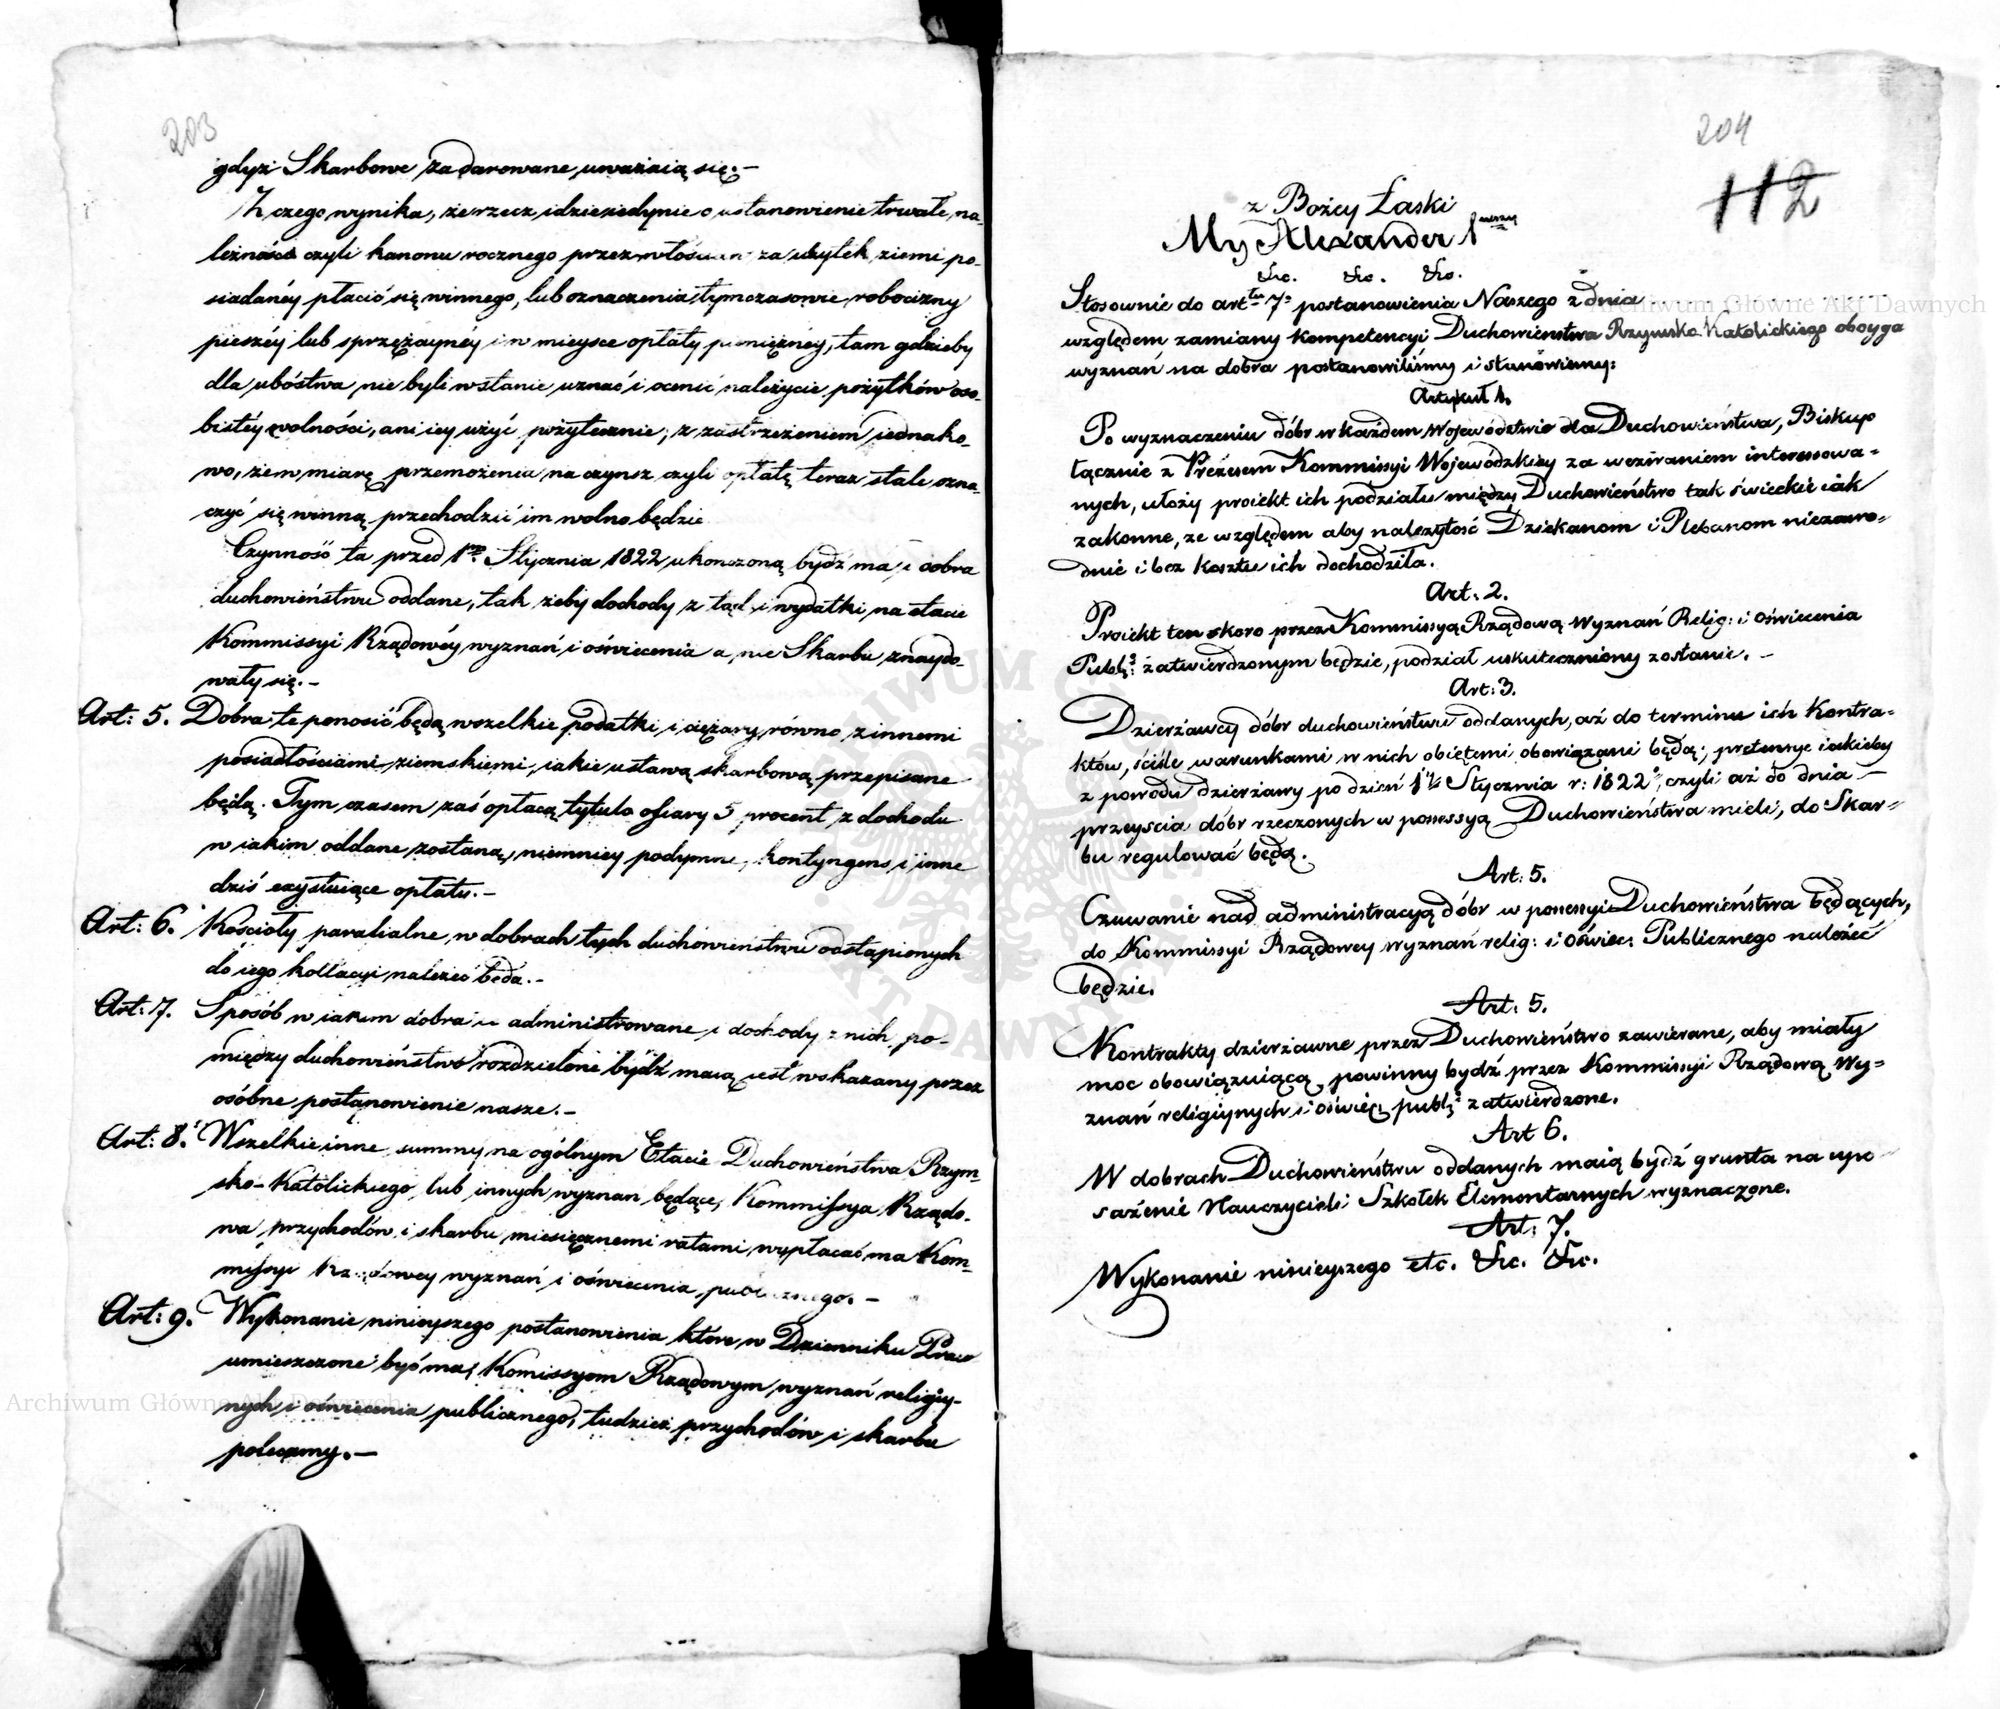 203
gdyż Skarbowe za darowane uważaią się.-
Z czego wynika, że rzecz idzie iedynie o ustanowienie trwałe, na-
leżności czyli kanonu rocznego przez włościan za użytek ziemi po-
siadanéy płacić się winnego, lub oznaczenia tymczasowie robocizny
pieszéy lub sprzężaynéy im w mieysce opłaty pieniężnéy, tam gdzieby
dla ubóstwa nie byli wstanie uznać i ocenić należycie pożytków oso-
bistéy wolności, ani iey użyć pożytecznie; z zastrzeżeniem iednako-
wo, że w miarę przemożenia na czynsz czyli opłatę teraz stale ozna-
czyć się winną przechodzić im wolno będzie
Czynność ta przed 1m Stycznia 1822 ukończoną bydź ma, i dobra
duchowieństwu oddane, tak żeby dochody z tąd i wydatki na etacie
Kommissyi Rządowéy wyznań i oświecenia a nie Skarbu, znaydo-
wały się.-
Art: 5. Dobra te ponosić będą wszelkie podatki i ciężary równo z innemi
posiadłościami ziemskiemi, iakie ustawą skarbową przepisane
będą. Tym czasem zaś opłacą tytulo ofiary 5 procent z dochodu
w iakim oddane zostaną, niemniey podymne, kontyngens i inne
dziś exystuiące opłaty.-
Art: 6. Kościoły parafialne, w dobrach tych duchowieństwu odstąpionych
do iego kollacyi należeć będą.-
Art: 7. Sposób w iakim dobra te administrowane i dochody z nich po-
między duchowieństwo rozdzielone bydź maią iest wskazany przez
osóbne postanowienie nasze.-
Art: 8. Wszelkie inne summy na ogólnym Etacie Duchowieństwa Rzym-
sko-Katolickiego, lub innych wyznan będące, Kommissya Rządo-
wa przychodów i skarbu miesięcznemi ratami wypłacać ma Kom-
missyi Rządowey wyznań i oświecenia publicznego.-
Art: 9. Wykonanie ninieyszego postanowienia które w Dzienniku Praw
umieszczone być ma, Komissyom Rządowym wyznań religiy-
nych i oświecenia publicznego, tudzież przychodów i skarbu
polecamy.-
204
112
z Bożey Łaski
My Alexander 1wszy
&c. &c. &c.
Stosownie do arttu 7o postanowienia Naszego z dnia
względem zamiany kompetencyi Duchowieństwa Rzymsko Katolickiego oboyga
wyznań na dobra postanowiliśmy i stanowiemy:
Artykuł 1.
Po wyznaczeniu dóbr w każdem Województwie dla Duchowieństwa, Biskup
łącznie z Prezesem Kommissyi Wojewódzkiey za wezwaniem interessowa-
nych, ułoży proiekt ich podziału między Duchowieństwo tak świeckie iak
zakonne, ze względem aby należytość Dziekanom i Plebanom niezawo-
dnie i bez kosztu ich dochodziła.
Art: 2.
Proiekt ten skoro przez Kommissyą Rządową Wyznań Relig: i Oświecenia
Publ: zatwierdzonym będzie, podział uskuteczniony zostanie.-
Art: 3.
Dzierżawcy dóbr duchowieństwu oddanych, aż do terminu ich kontra-
któw, ściśle warunkami w nich obiętemi obowiązani będą; pretensye iakieby
z powodu dzierżawy po dzień 1 Stycznia r: 1822, czyli aż do dnia -
przeyścia dóbr rzeczonych w possessyą Duchowieństwa mieli, do Skar-
bu regulować będą.
Art: 5.
Czuwanie nad administracyą dóbr w possessyi Duchowieństwa będących,
do Kommissyi Rządowey wyznań relig: i Oświec: Publicznego należeć
będzie.
Art: 5.
Kontrakty dzierżawne przez Duchowieństwo zawierane, aby miały
moc obowiązuiącą, powinny bydź przez Kommissyi Rządową Wy-
znań religiynych i oświec: publ: zatwierdzone.
Art 6.
W dobrach Duchowieństwu oddanych maią bydź grunta na upo-
sażenie Nauczycieli Szkołek Elementarnych wyznaczone.
Art: 7.
Wykonanie ninieyszego etc. &c. &c.
Archiwum Główne Akt Dawnych
Archiwum Główne Akt Dawnych